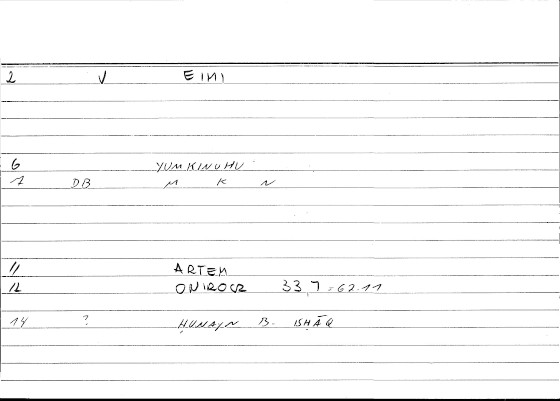 2 V EINI
6 YUMKINUHU
7 DB M K N
11 ARTEM
12 ONIROCR 33,7 = 62.11
14 ? ḤUNAYN B. ISḤĀQ